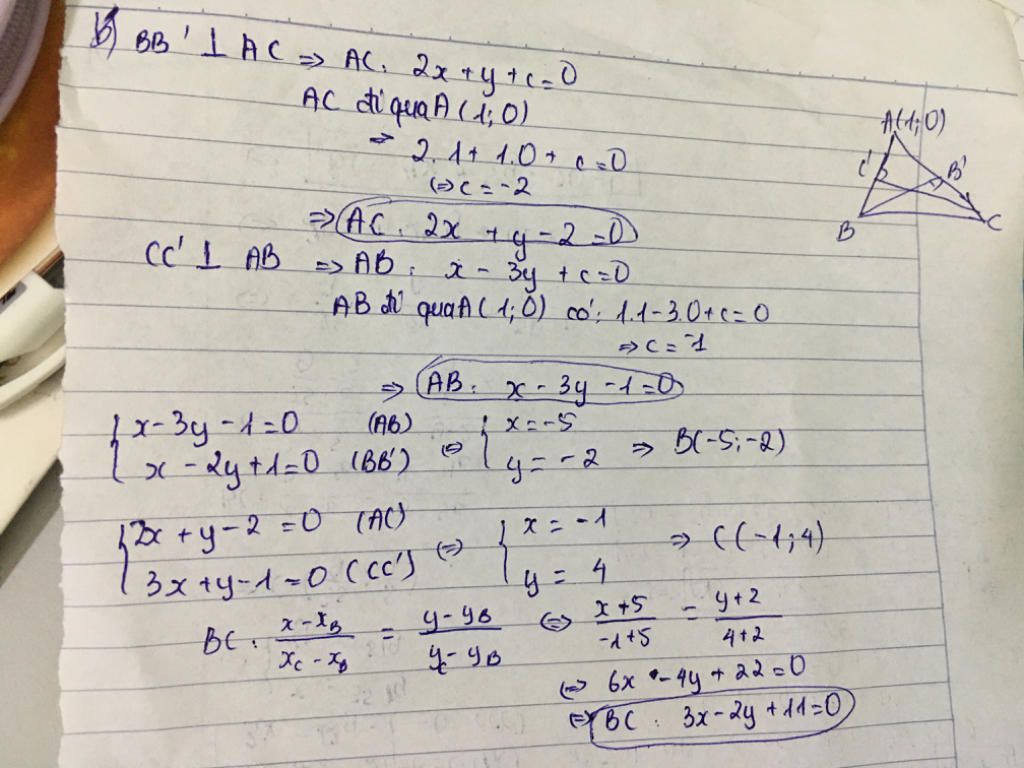 b) BB' ⊥ AC ⇒ AC: 2x + y + c = 0
AC đi qua A (1; 0)
⇒ 2.1 + 1.0 + c = 0
⇔ c = -2
⇒ AC: 2x + y - 2 = 0
CC' ⊥ AB ⇒ AB: x - 3y + c = 0
AB đi qua A (1; 0) có: 1.1 - 3.0 + c = 0
⇒ c = -1
⇒ AB: x - 3y - 1 = 0
{ x - 3y - 1 = 0 (AB) ⇔ { x = -5
{ x - 2y + 1 = 0 (BB') { y = -2 ⇒ B(-5; -2)
{ 2x + y - 2 = 0 (AC) ⇔ { x = -1
{ 3x + y - 1 = 0 (CC') { y = 4 ⇒ C (-1; 4)
BC: (x - x_B)/(x_C - x_B) = (y - y_B)/(y_C - y_B) ⇔ (x + 5)/(-1 + 5) = (y + 2)/(4 + 2)
⇔ 6x - 4y + 22 = 0
⇔ BC: 3x - 2y + 11 = 0
A(1; 0)
C' B'
B C